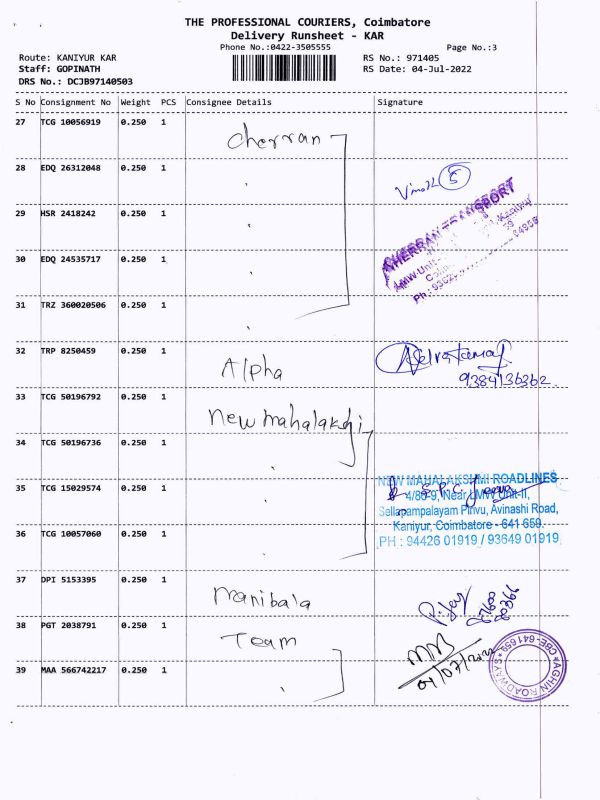 THE PROFESSIONAL COURIERS, Coimbatore
Delivery Runsheet - KAR
Phone No.:0422-3505555 Page No.:3
Route: KANIYUR KAR RS No.: 971405
Staff: GOPINATH RS Date: 04-Jul-2022
DRS No.: DCJB97140503
S No Consignment No Weight PCS Consignee Details Signature
27 TCG 10056919 0.250 1 Cherran
28 EDQ 26312048 0.250 1
29 HSR 2418242 0.250 1
CHERRAN TRANSPORT
30 EDQ 24535717 0.250 1
31 TRZ 360020506 0.250 1
32 TRP 8250459 0.250 1 Alpha
9384136362
33 TCG 50196792 0.250 1 New mahalakshi
34 TCG 50196736 0.250 1
NEW MAHALAKSHMI ROADLINES
35 TCG 15029574 0.250 1
4/86-9, Near LMW Unit-II,
Sellapampalayam Pirivu, Avinashi Road,
36 TCG 10057060 0.250 1
Kaniyur, Coimbatore - 641 659.
PH : 94426 01919 / 93649 01919
37 DPI 5153395 0.250 1 Manibala
38 PGT 2038791 0.250 1 Team
39 MAA 566742217 0.250 1
04/07/2022
AGHIN ROADWAYS * CBE-641 659 *